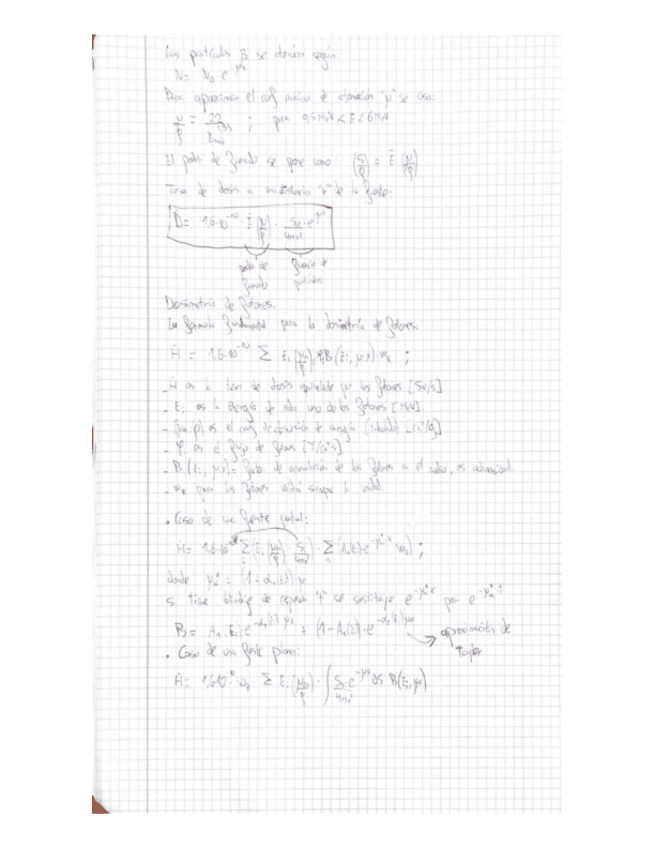 Las partículas β se atenúan según
N = N₀ e^-μx
Para aproximar el coef. másico de atenuación "μ" se usa:
μ/ρ = 22/E_max ; para 0,5 MeV < E < 6 MeV
El poder de frenado se pone como: (S/ρ) = Ē (μ/ρ)
Tasa de dosis a una distancia "r" de la fuente.
Ḋ = 1,6·10^-10 · Ē (μ/ρ) · S₀/4πr² · e^-μr
poder de
frenado
fluencia de
partículas
Dosimetría de fotones.
La fórmula fundamental para la dosimetría de fotones.
Ḣ = 1,6·10^-10 Σ E_i (μ_a/ρ) φ_i B (E_i, μ·x) · w_R ;
- Ḣ es la tasa de dosis equivalente por los fotones [Sv/s]
- E_i es la energía de cada uno de los fotones [MeV].
- (μ_a/ρ) es el coef. de absorción de energía (tabulado) [cm²/g]
- φ_i es el flujo de fotones [γ/cm²s]
- B (E_i, μx) = factor de acumulación de los fotones en el , es adimensional.
- w_R para los fotones valdrá siempre la unidad.
• Caso de una fuente puntual:
Ḣ = 1,6·10^-10 Σ (E_i (μ_a/ρ) · S_i/4πr²) · Σ (A_n(E) e^-μ*x w_R) ;
donde μ_n* = (1 + α_n(E)) · μ
Si tiene blindaje de espesor "t" se sustituye e^-μ*x por e^-μ*·t
B = A_n(E_i) · e^-α₁(E) μx + (1 - A_n(E)) · e^-α₂(E) μx
→ aproximación de
Taylor
• Caso de una fuente plana:
Ḣ = 1,6·10^-10 w_R Σ E_i (μ_a/ρ) · ∫ S_i e^-μx/4πr² dS B(E_i, μx)